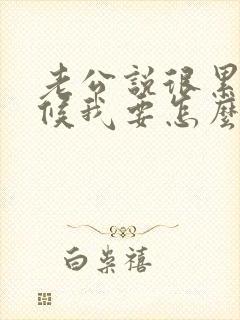 老公說很累
候我要怎麼
白柴禧